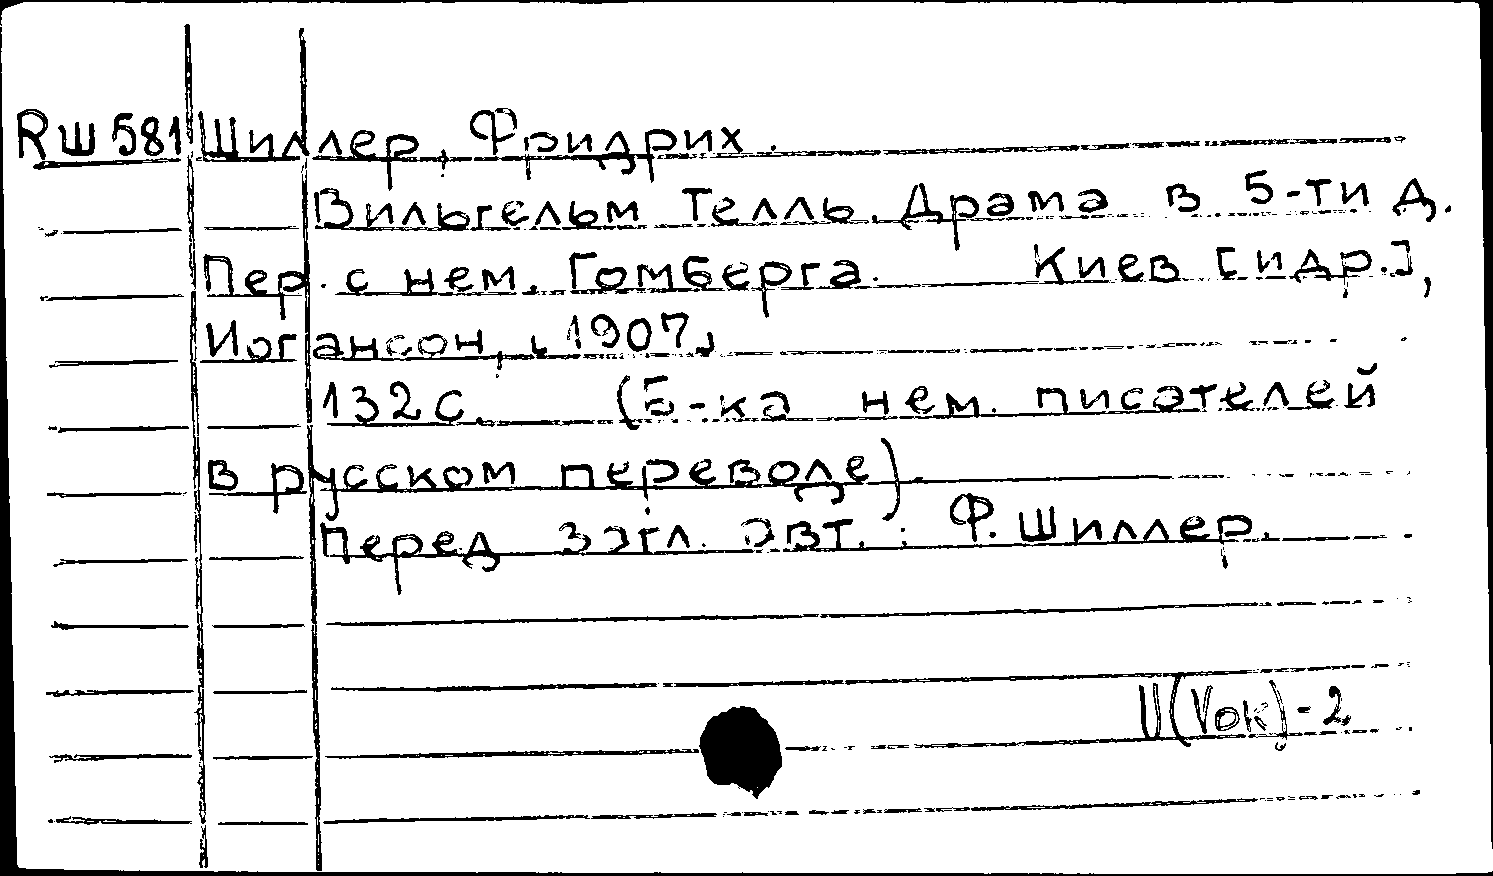 RШ581 Шиллер, Фридрих.
Вильгельм Телль. Драма в 5-ти д.
Пер. с нем. Гомберга. Киев [и др.],
Иогансон, [1907]
132 с. (Б-ка нем. писателей
в русском переводе).
Перед загл. авт.: Ф. Шиллер.
U(Vок)-2